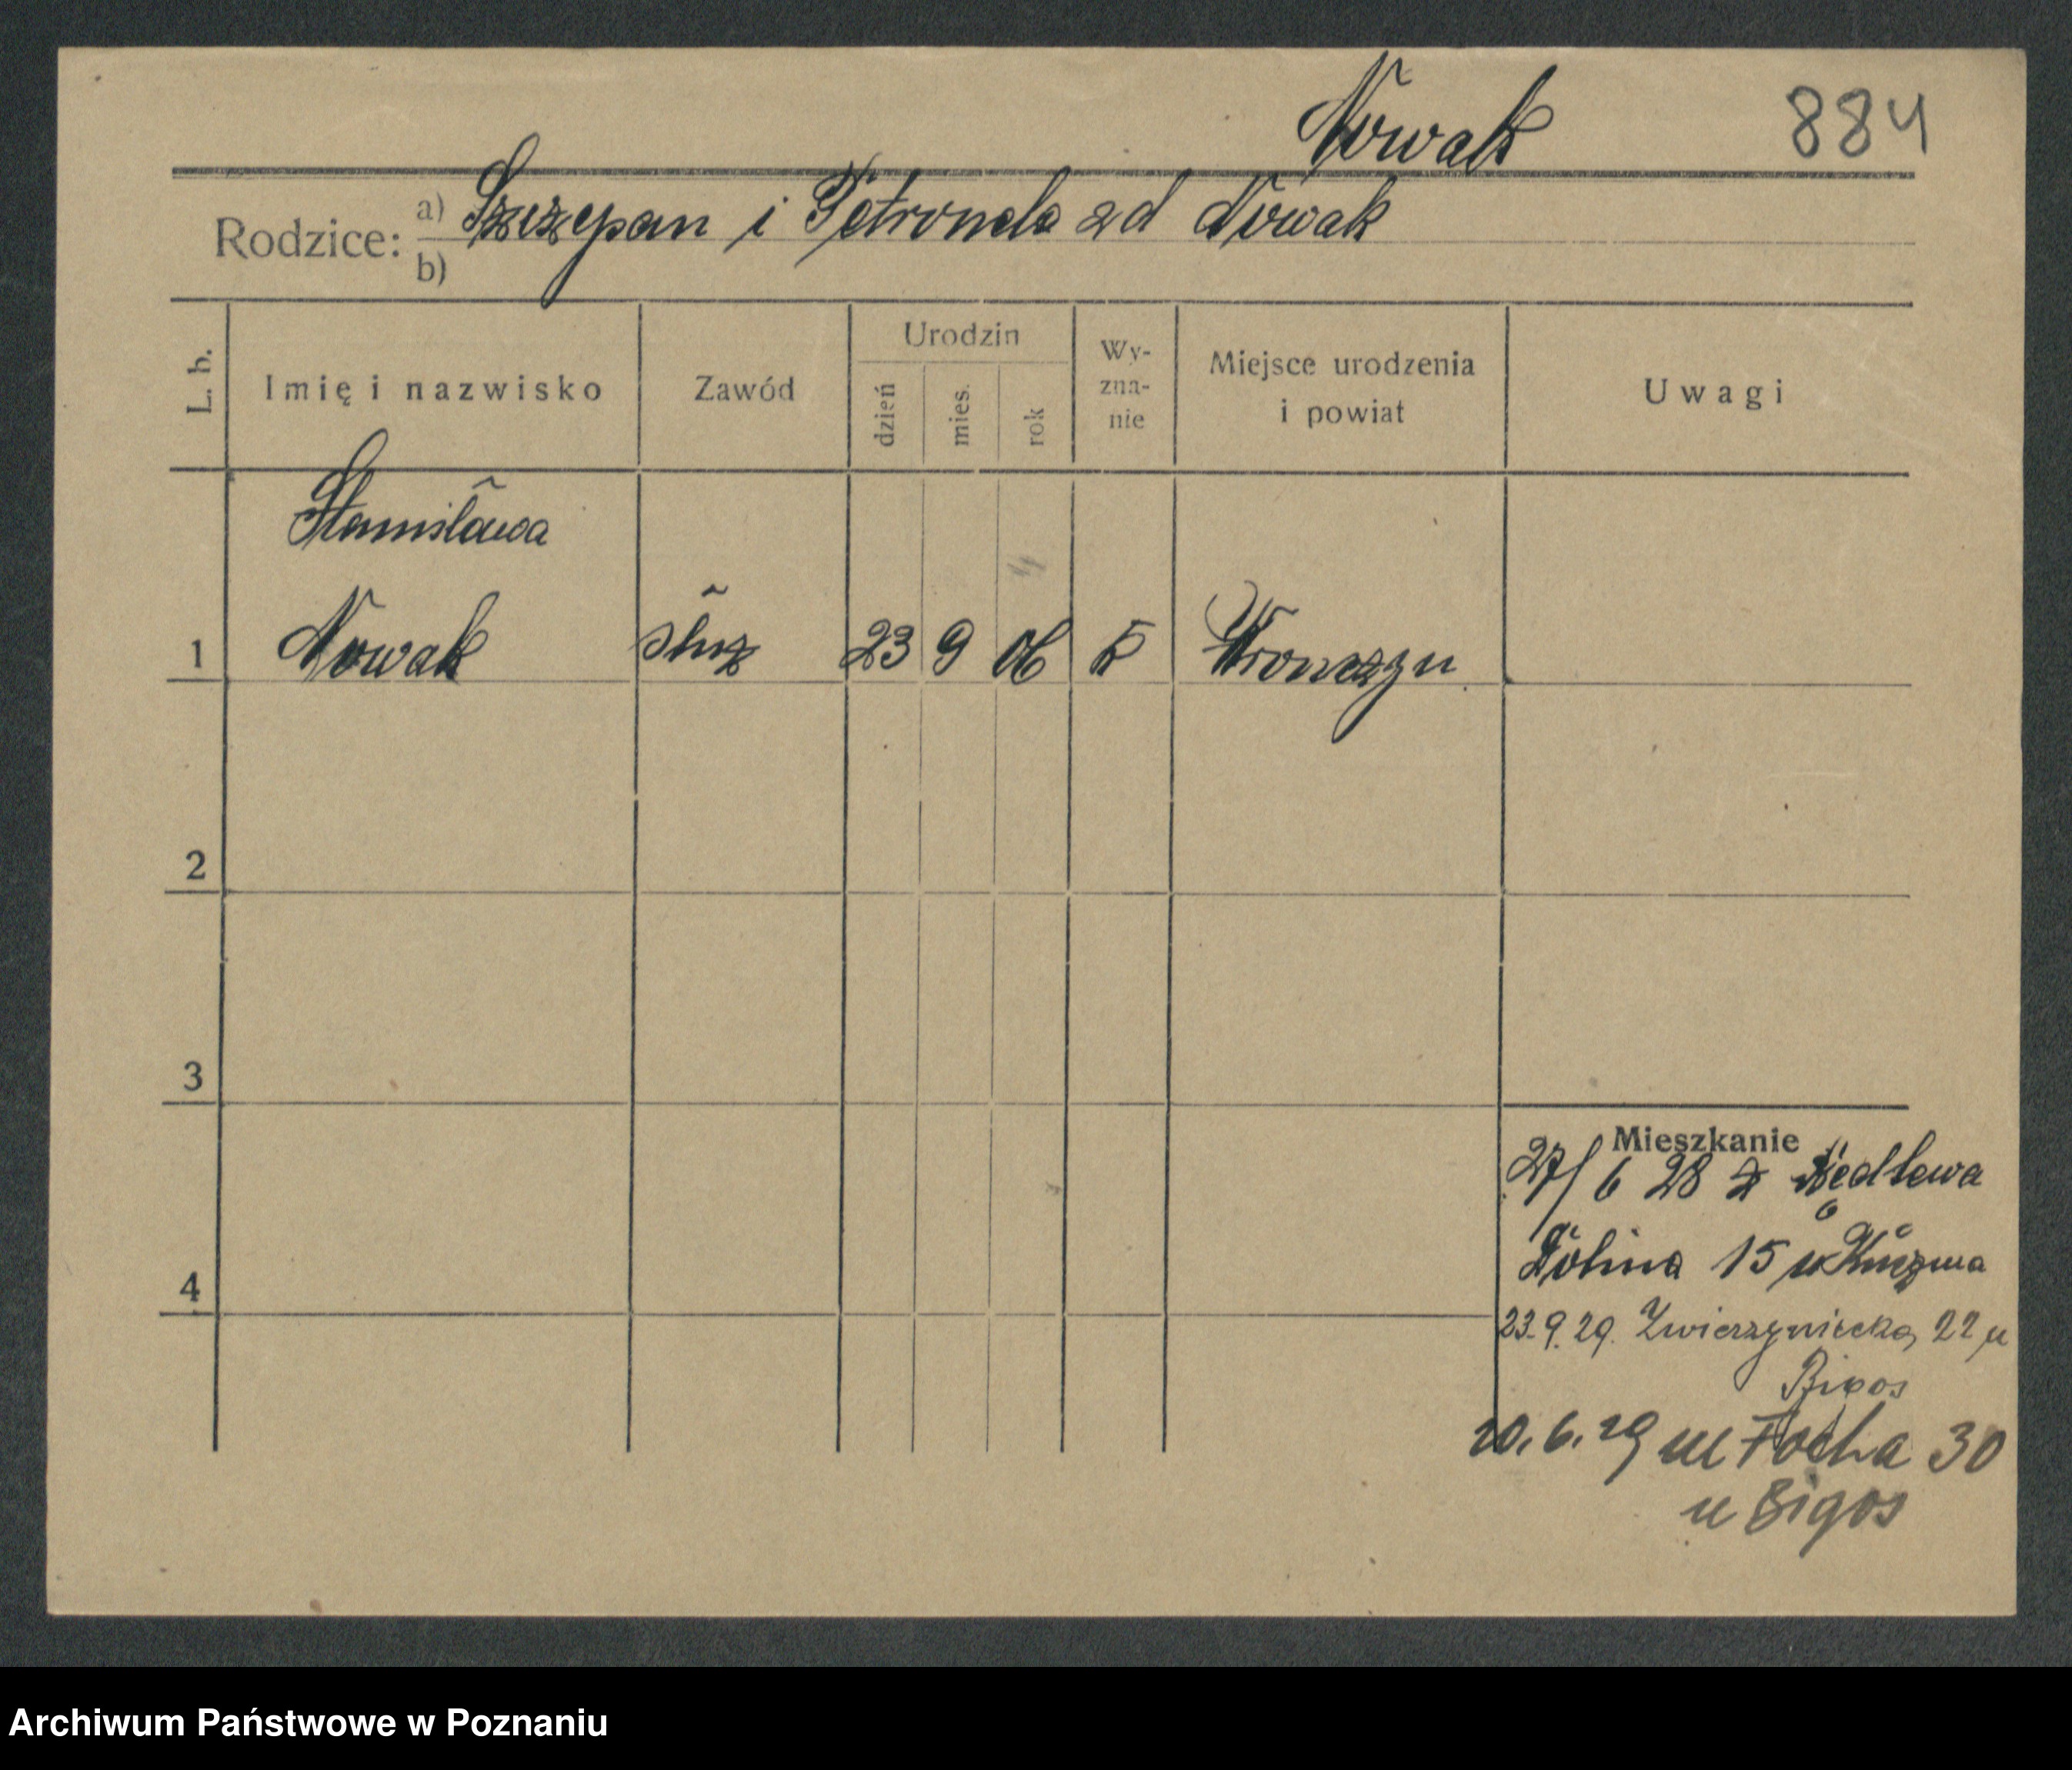 Nowak 884
Rodzice: a) Szczepan i Petronela zd Nowak
b)
L. b. Imię i nazwisko Zawód Urodzin dzień mies. rok Wy-zna-nie Miejsce urodzenia i powiat Uwagi
Stanisława
1 Nowak służ 23 9 06 k Wronczyn
2
3
Mieszkanie
27/6 28 z
4 Dolina 15 u Kuzma
23.9.29. Zwierzyniecka 22 u
Bigos
20.6.29 ul Focha 30
u Bigos
Archiwum Państwowe w Poznaniu